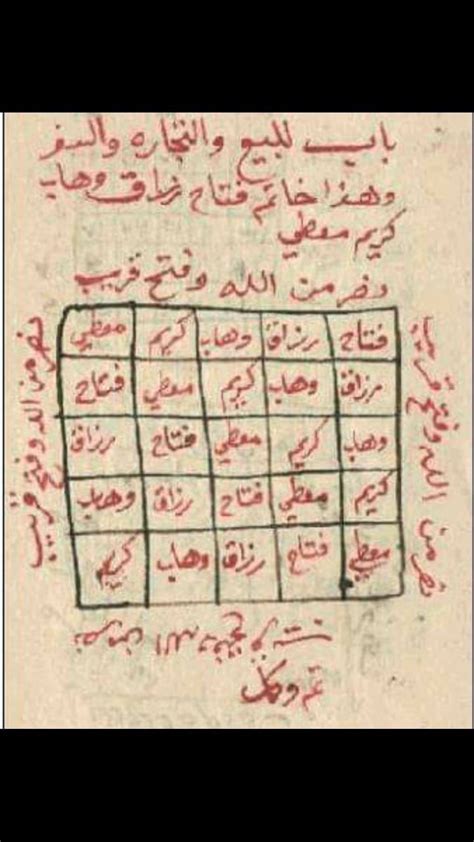 باب للبيع والتجاره والسفر
وهذا خاتم فتاح رزاق وهاب
كريم معطي
نصر من الله وفتح قريب
فتاح رزاق وهاب كريم معطي
رزاق وهاب كريم معطي فتاح
وهاب كريم معطي فتاح رزاق
كريم معطي فتاح رزاق وهاب
معطي فتاح رزاق وهاب كريم
نصر من الله وفتح قريب
نصر من الله وفتح قريب
تم وكمل